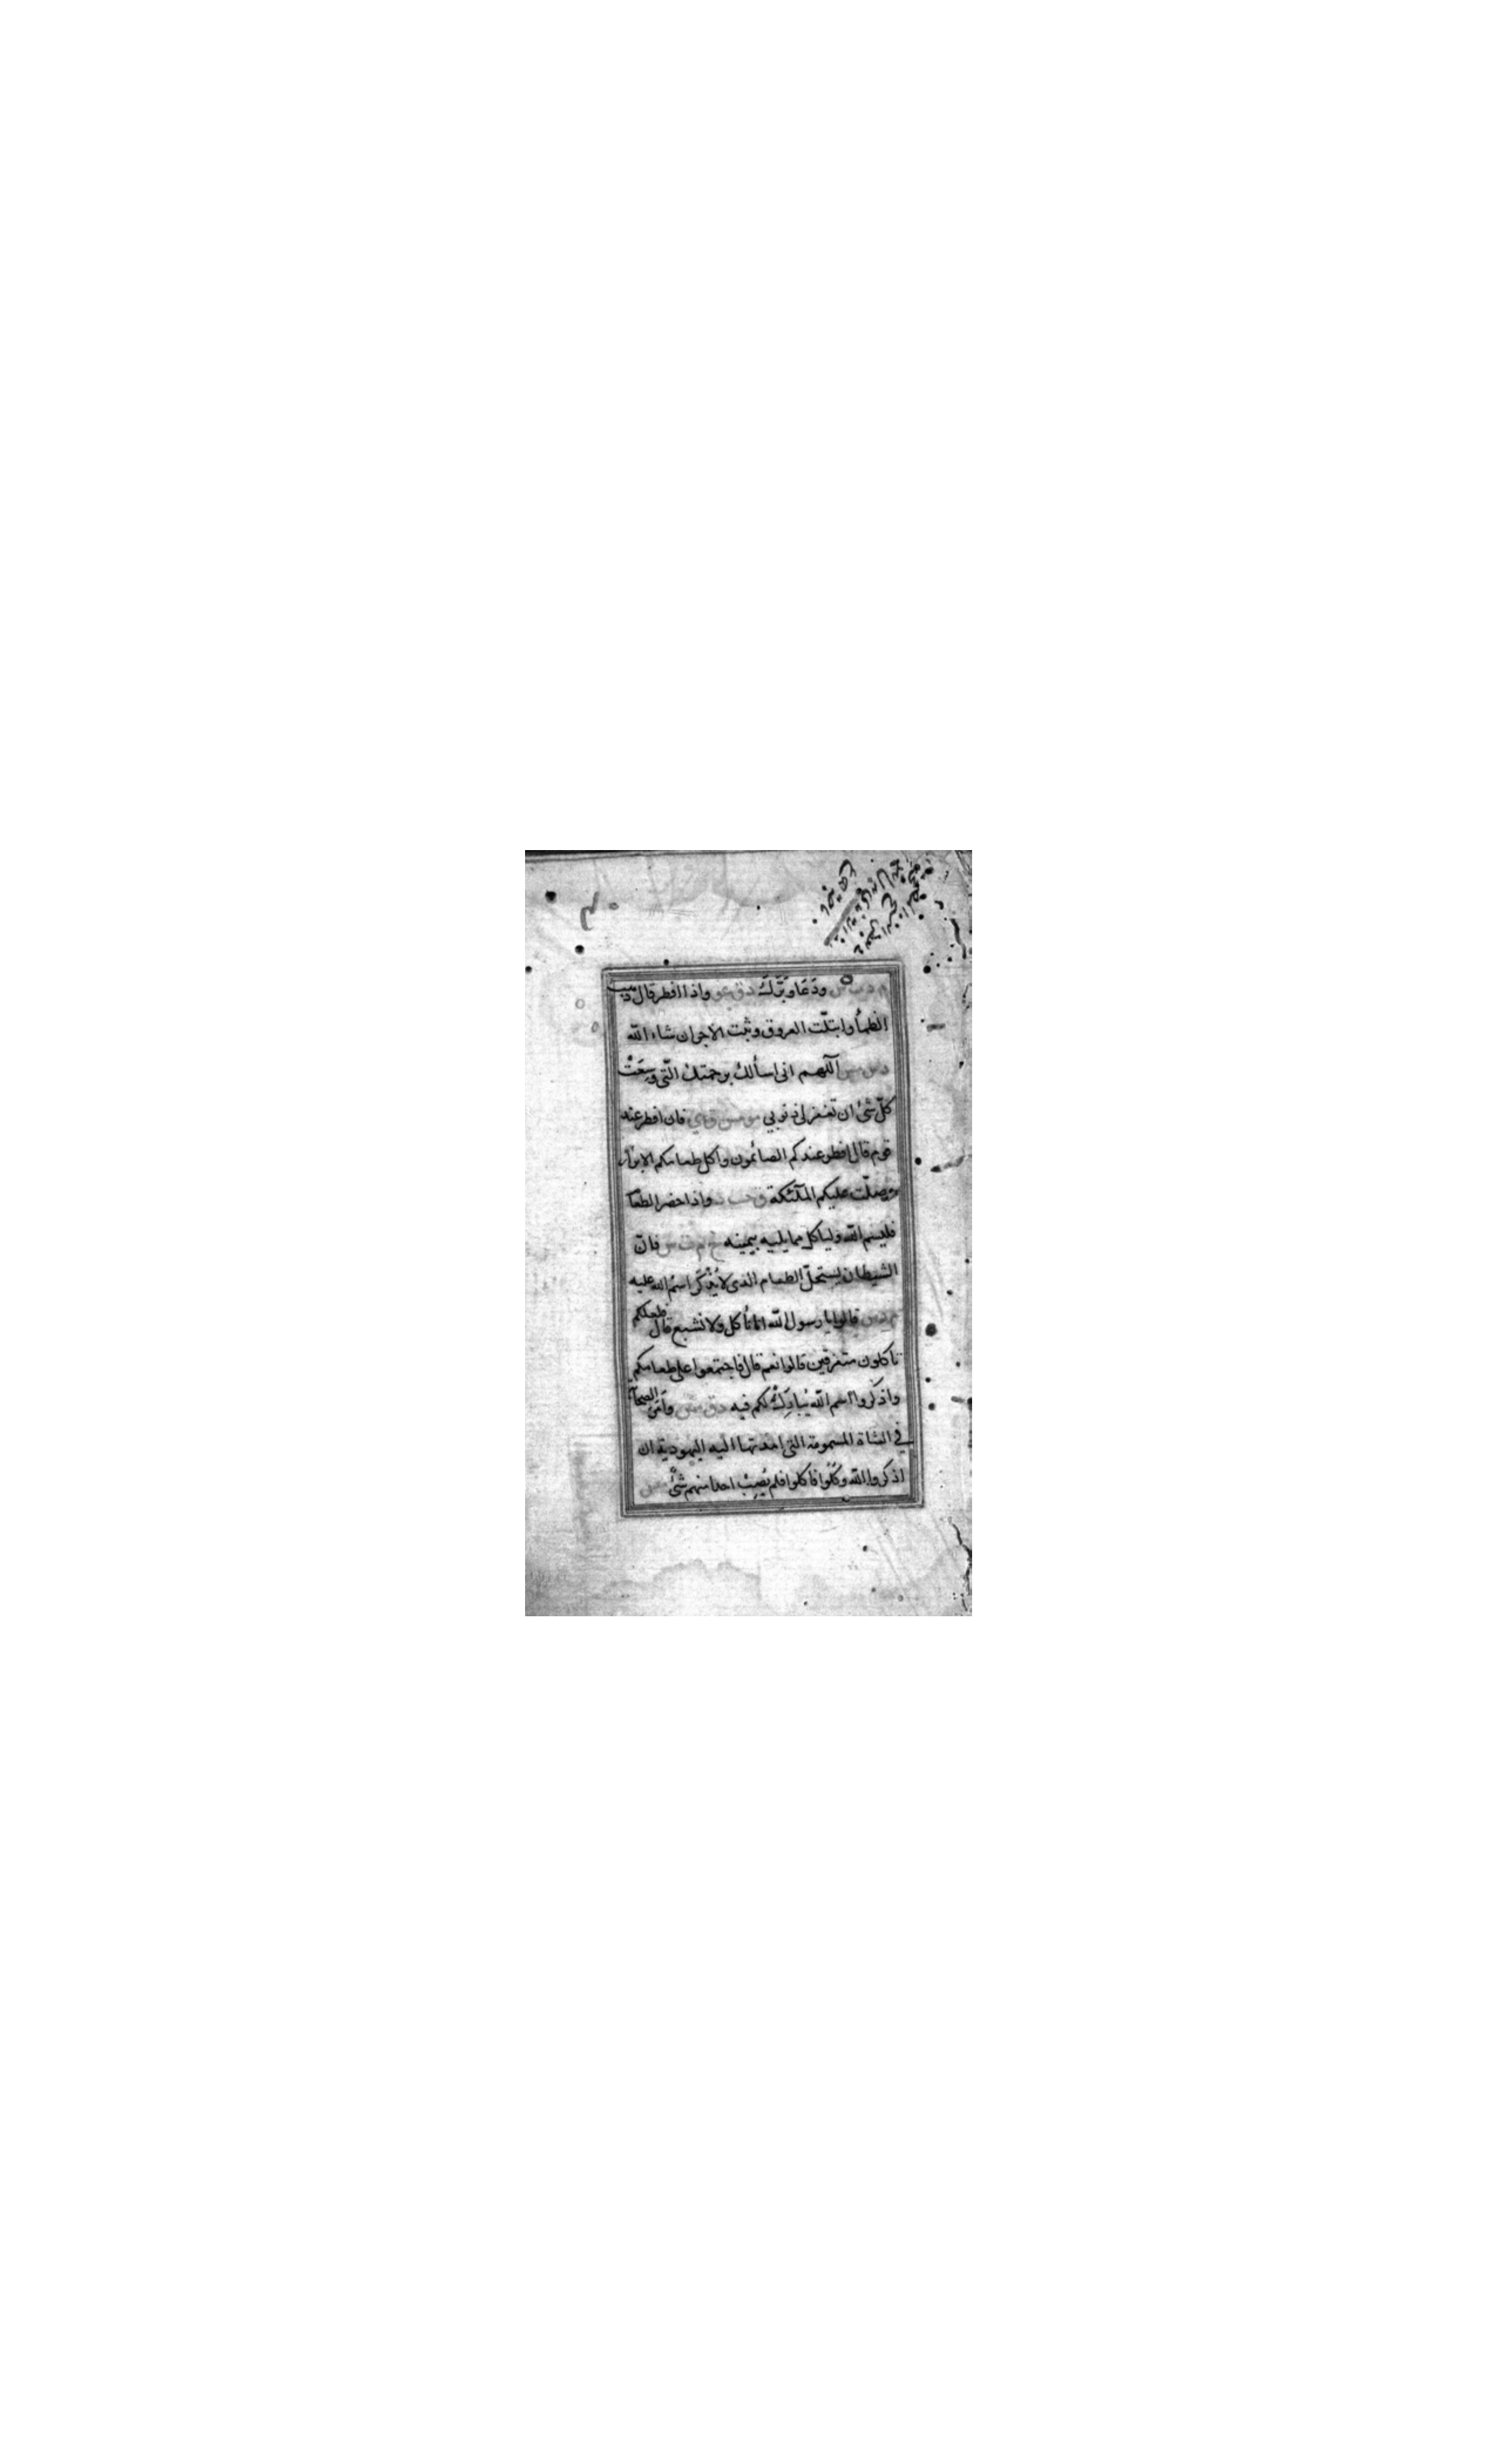 م د ت س ودعا وبرّك د ق عو واذا افطر قال ذهب
الظمأ وابتلّت العروق وثبت الاجر ان شاء الله
د س مس اللّهم انى اسألك برحمتك الّتى وسِعَتْ
كلّ شئ ان تغفر لى ذنوبي مو مس ق ي فان افطر عند
قوم قال افطر عندكم الصائمون واكل طعامكم الابرار
وصلّت عليكم الملٓئكة ق حب د واذا حضر الطعام
فليسم الله ولياكل مما يليه بيمينه خ م ت س فانّ
الشيطان يستحلّ الطعام الذى لا يُذْكَر اسم الله عليه
م د س قالوا يا رسول الله انا نأكل ولا نشبع قال فلعلكم
تاكلون متفرقين قالوا نعم قال فاجتمعوا على طعامكم
واذكروا اسم الله يُبارَكْ لكم فيه د ق مس وأمَرَ الصحابة
في الشاة المسمومة التى اهدتها اليه اليهودية ان
اذكروا الله وكُلُوا فاكلوا فلم يُصِبْ احدا منهم شئٌ مس